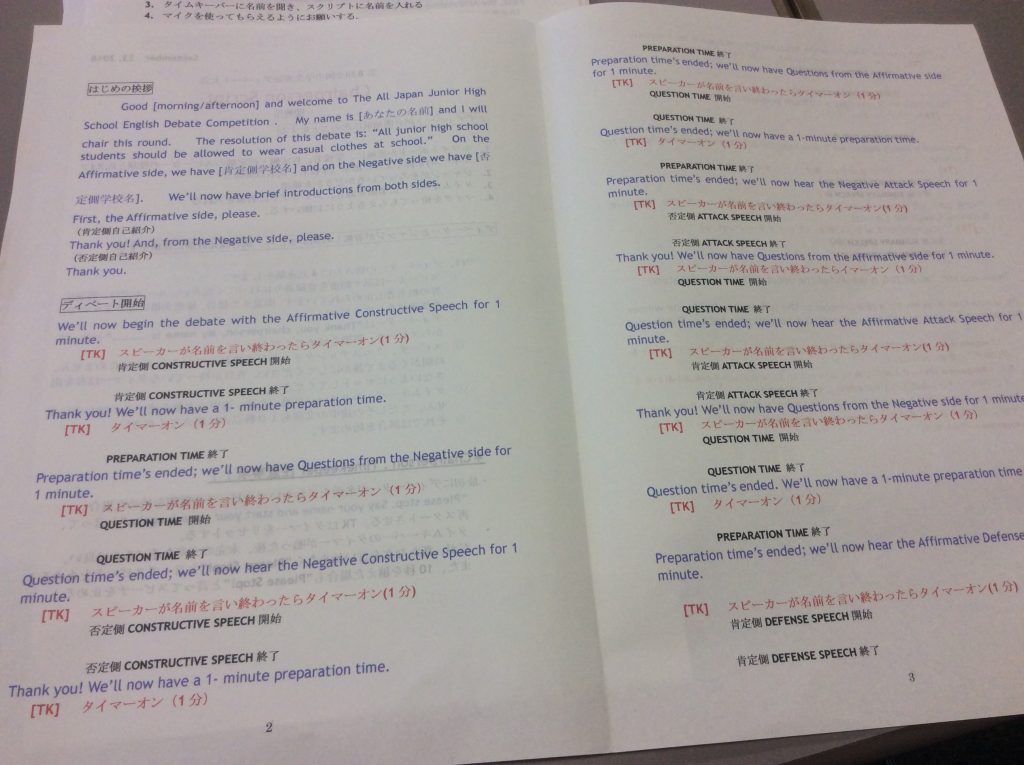 3. タイムキーパーに名前を聞き、スクリプトに名前を入れる
4. マイクを使ってもらえるようにお願いする。
はじめの挨拶
Good [morning/afternoon] and welcome to The All Japan Junior High
School English Debate Competition . My name is [あなたの名前] and I will
chair this round. The resolution of this debate is: "All junior high school
students should be allowed to wear casual clothes at school." On the
Affirmative side, we have [肯定側学校名] and on the Negative side we have [否
定側学校名]. We'll now have brief introductions from both sides.
First, the Affirmative side, please.
(肯定側自己紹介)
Thank you! And, from the Negative side, please.
(否定側自己紹介)
Thank you.
ディベート開始
We'll now begin the debate with the Affirmative Constructive Speech for 1
minute.
[TK] スピーカーが名前を言い終わったらタイマーオン(1分)
肯定側 CONSTRUCTIVE SPEECH 開始
肯定側 CONSTRUCTIVE SPEECH 終了
Thank you! We'll now have a 1- minute preparation time.
[TK] タイマーオン（1分）
PREPARATION TIME 終了
Preparation time's ended; we'll now have Questions from the Negative side for
1 minute.
[TK] スピーカーが名前を言い終わったらタイマーオン（1分）
QUESTION TIME 開始
QUESTION TIME 終了
Question time's ended; we'll now hear the Negative Constructive Speech for 1
minute.
[TK] スピーカーが名前を言い終わったらタイマーオン(1分)
否定側 CONSTRUCTIVE SPEECH 開始
否定側 CONSTRUCTIVE SPEECH 終了
Thank you! We'll now have a 1- minute preparation time.
[TK] タイマーオン（1分）
2
PREPARATION TIME 終了
Preparation time's ended; we'll now have Questions from the Affirmative side
for 1 minute.
[TK] スピーカーが名前を言い終わったらタイマーオン（1分）
QUESTION TIME 開始
QUESTION TIME 終了
Question time's ended; we'll now have a 1-minute preparation time.
[TK] タイマーオン（1分）
PREPARATION TIME 終了
Preparation time's ended; we'll now hear the Negative Attack Speech for 1
minute.
[TK] スピーカーが名前を言い終わったらタイマーオン(1分)
否定側 ATTACK SPEECH 開始
否定側 ATTACK SPEECH 終了
Thank you! We'll now have Questions from the Affirmative side for 1 minute.
[TK] スピーカーが名前を言い終わったらイマーオン（1分）
QUESTION TIME 開始
QUESTION TIME 終了
Question time's ended; we'll now hear the Affirmative Attack Speech for 1
minute.
[TK] スピーカーが名前を言い終わったらタイマーオン(1分)
肯定側 ATTACK SPEECH 開始
肯定側 ATTACK SPEECH 終了
Thank you! We'll now have Questions from the Negative side for 1 minute
[TK] スピーカーが名前を言い終わったらタイマーオン（1分）
QUESTION TIME 開始
QUESTION TIME 終了
Question time's ended. We'll now have a 1-minute preparation time
[TK] タイマーオン（1分）
PREPARATION TIME 終了
Preparation time's ended; we'll now hear the Affirmative Defense
minute.
[TK] スピーカーが名前を言い終わったらタイマーオン(1分)
肯定側 DEFENSE SPEECH 開始
肯定側 DEFENSE SPEECH 終了
3